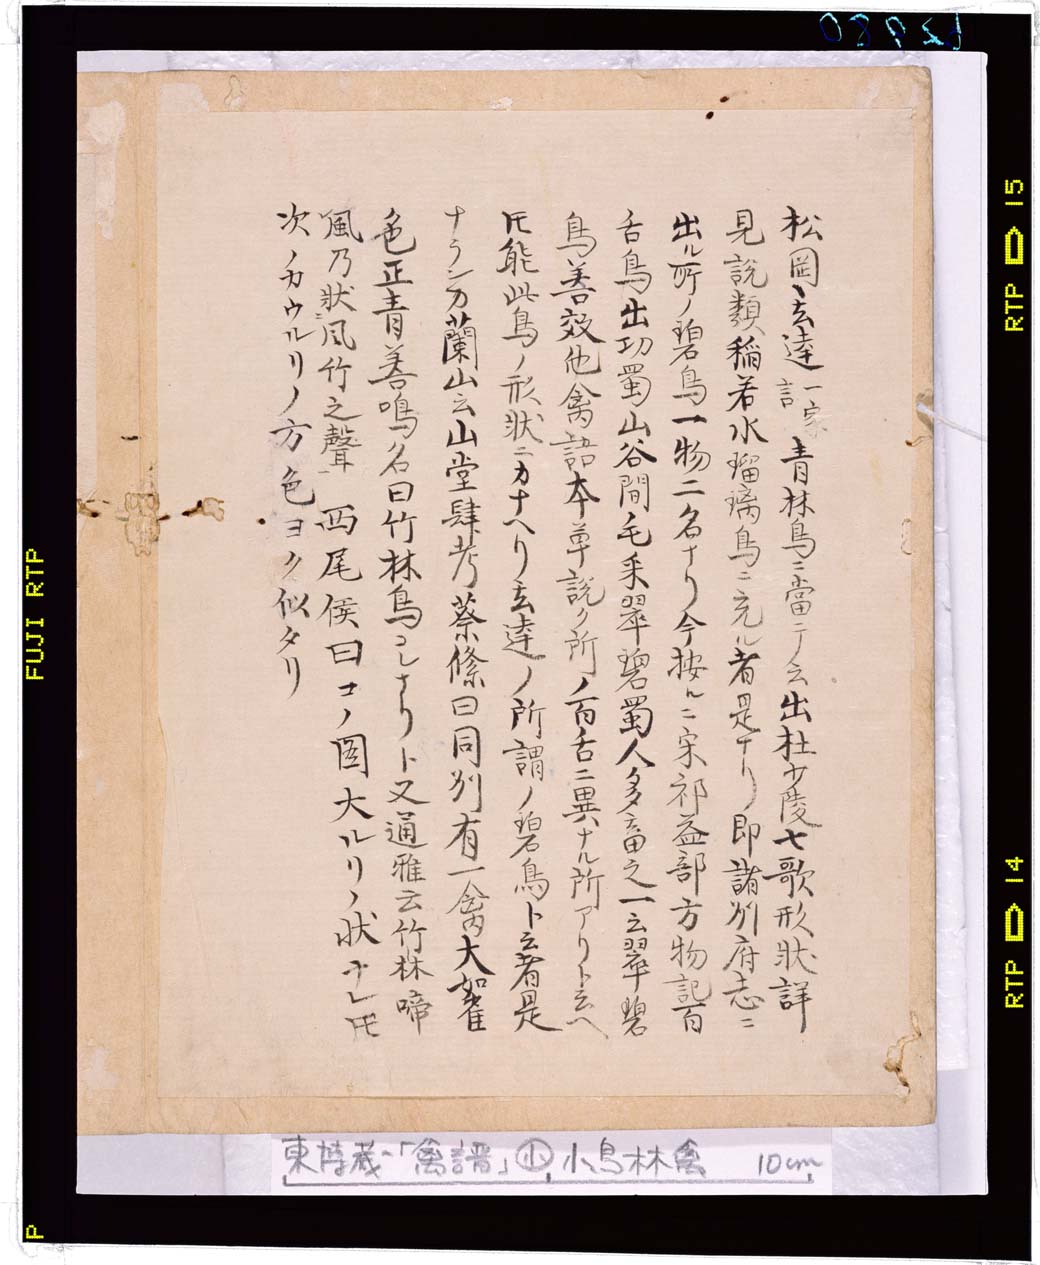 松岡玄達一家言青林鳥ニ當テ云出杜少陵七歌形狀詳
見說類稲若水瑠璃鳥ニ充ル者是ナリ即諸州府志ニ
出ル所ノ碧鳥一物二名ナリ今按ルニ宋祁益部方物記百
舌鳥出功蜀山谷間毛采翠碧蜀人多畜之一云翠碧
鳥善效他禽語本草說ク所ノ百舌ニ異ナル所アリト云ヘ
𪜈能此鳥ノ形狀ニカナヘリ玄達ノ所謂ノ碧鳥ト云者是
ナランカ蘭山云山堂肆考蔡絛曰同州有一禽大如雀
色正青善鳴名曰竹林鳥コレナリト又通雅云竹林啼
風乃狀風竹之聲 西尾侯曰コノ圖大ルリノ狀ナレ𪜈
次ノカウルリノ方色ヨク似タリ
東博蔵「禽譜」小 小鳥林禽 10cm
FUJI RTP
RTP 15
RTP 14
P